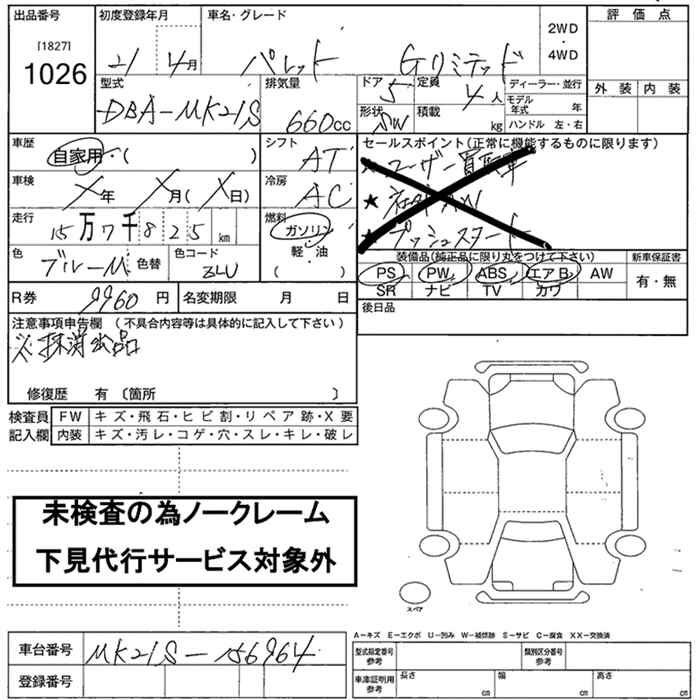 出品番号
[1827]
1026
初度登録年月
21 4月
車名・グレード
パレット Gリミテッド
2WD
4WD
評価点
外装 内装
型式
DBA-MK21S
排気量
660cc
ドア 5
形状 SW
定員 4人
積載 kg
ディーラー・並行
モデル年式 年
ハンドル 左・右
車歴
自家用・( )
シフト
AT
セールスポイント(正常に機能するものに限ります)
★ユーザー買取車
★
★プッシュスタート
車検
X年 X月(X日)
冷房
AC
走行
15万7千825km
燃料
ガソリン
軽油
( )
色
ブルーM 色替
色コード
ZLU
装備品(純正品に限り丸をつけて下さい)
新車保証書
PS PW ABS エアB AW
SR ナビ TV カワ
有・無
R券 9960円
名変期限 月 日
後日品
注意事項申告欄 (不具合内容等は具体的に記入して下さい)
※抹消出品
修復歴 有 〔箇所 〕
検査員記入欄
FW キズ・飛石・ヒビ割・リペア跡・X要
内装 キズ・汚レ・コゲ・穴・スレ・キレ・破レ
未検査の為ノークレーム
下見代行サービス対象外
スペア
車台番号 MK21S-156964
登録番号
A-キズ E-エクボ U-凹み W-補修跡 S-サビ C-腐食 XX-交換済
型式指定番号 参考
類別区分番号 参考
車庫証明用 参考
長さ cm
幅 cm
高さ cm